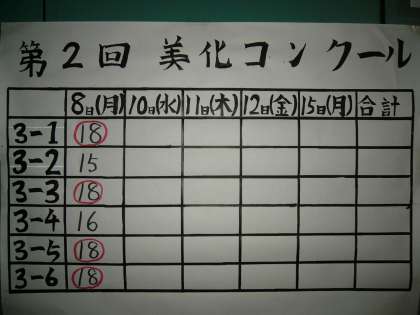 第2回 美化コンクール
8日(月) 10日(水) 11日(木) 12日(金) 15日(月) 合計
3-1 18
3-2 15
3-3 18
3-4 16
3-5 18
3-6 18